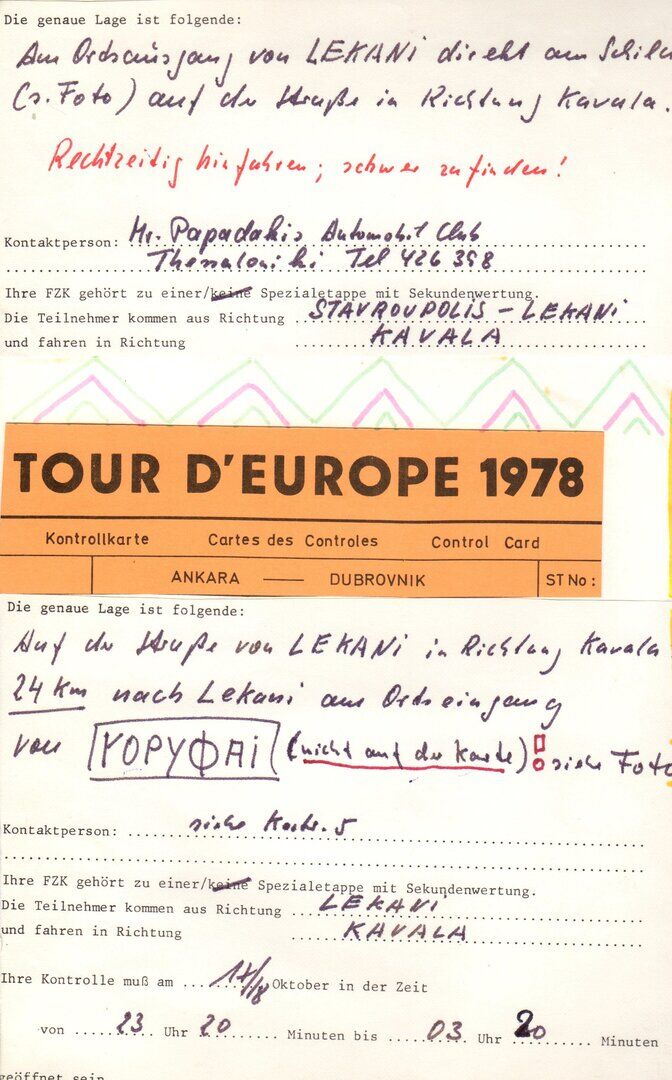 Die genaue Lage ist folgende:
Am Ordsausgang von LEKANI direkt am Schild
(s. Foto) auf der Straße in Richtung Kavala.
Rechtzeitig hinfahren; schwer zu finden!
Kontaktperson: Mr. Papadakis Automobil Club
Thessaloniki Tel 426 398
Ihre FZK gehört zu einer/keine Spezialetappe mit Sekundenwertung.
Die Teilnehmer kommen aus Richtung STAVROUPOLIS - LEKANI
und fahren in Richtung KAVALA
TOUR D'EUROPE 1978
Kontrollkarte Cartes des Controles Control Card
ANKARA — DUBROVNIK ST No:
Die genaue Lage ist folgende:
Auf der Straße von LEKANI in Richtung Kavala
24 Km nach Lekani am Ordseingang
von ΚΟΡΥΦΑΙ (nicht auf der Karte)! siehe Foto
Kontaktperson: siehe Kontr. 5
Ihre FZK gehört zu einer/keine Spezialetappe mit Sekundenwertung.
Die Teilnehmer kommen aus Richtung LEKANI
und fahren in Richtung KAVALA
Ihre Kontrolle muß am 17/18 Oktober in der Zeit
von 23 Uhr 20 Minuten bis 03 Uhr 20 Minuten
geöffnet sein